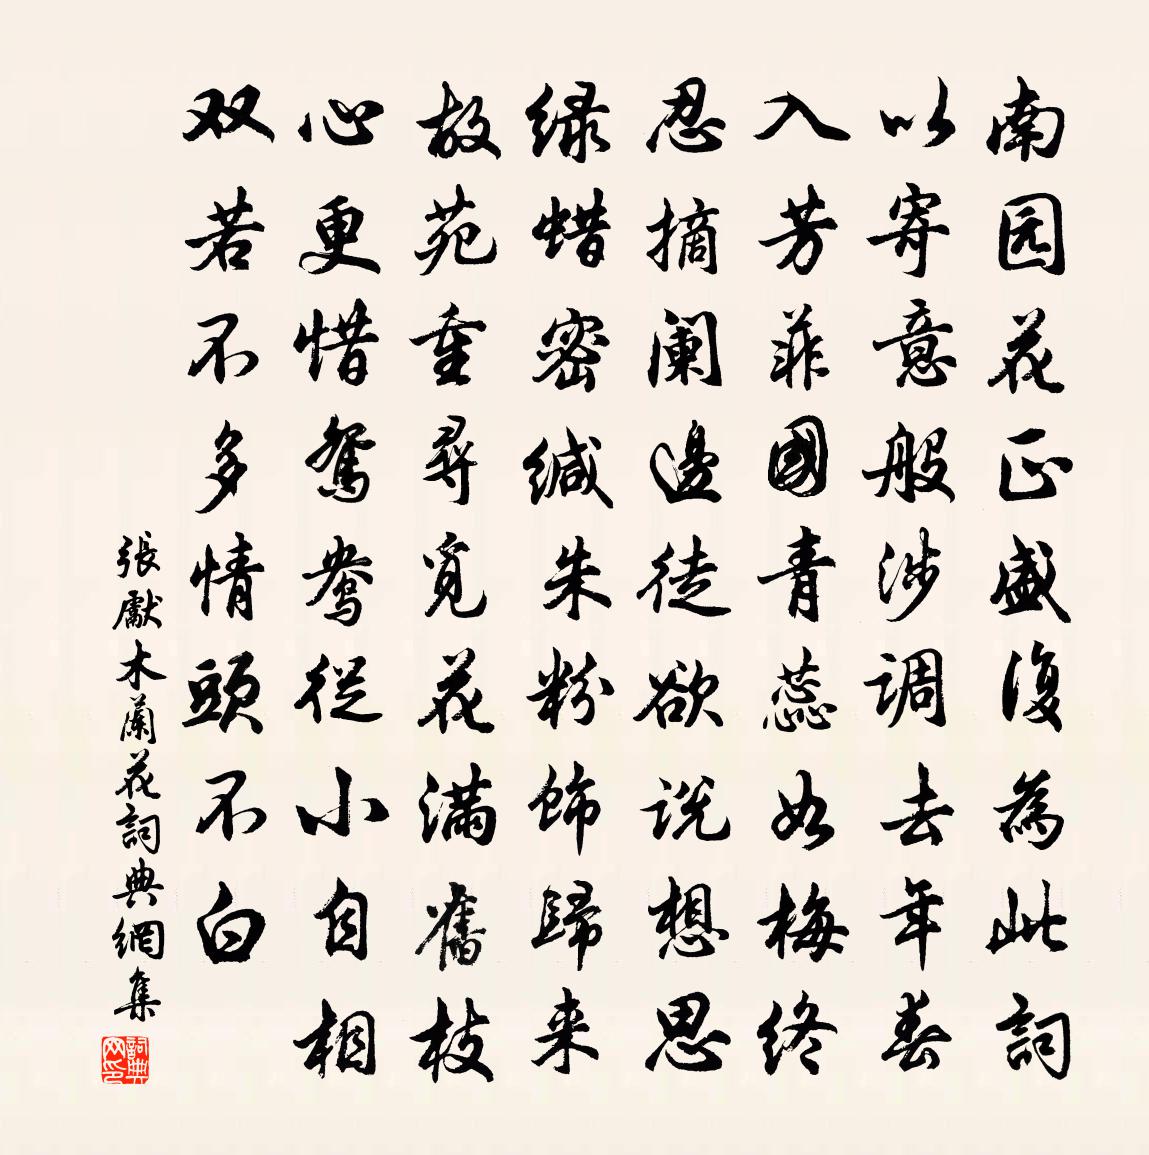 南园花正盛復為此詞
以寄意般涉调去年春
入芳菲國青蕊如梅终
忍摘阑邊徒欲说想思
绿蜡密缄朱粉饰歸来
故苑重尋觅花满舊枝
心更惜鴛鴦從小自相
双若不多情頭不白
張獻木蘭花詞典網集
詞典网印